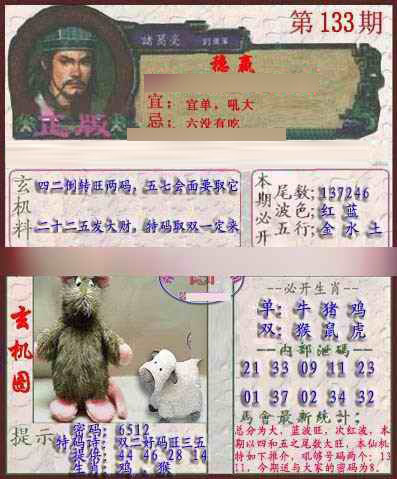 第133期
諸葛亮
稳赢
宜：宜单，吼大
忌：六没有吃
正版
玄机料
四二倒转旺两码，五七会面要取它
二十二五发大财，特码取双一定来
本期必开
尾数：137246
波色：红 蓝
五行：金 水 土
玄机图
必开生肖
单：牛 猪 鸡
双：猴 鼠 虎
内部泄码
21 33 09 11 23
01 37 02 34 32
馬會最新統計：
总分为大，蓝波旺，次红波，本
期以四和五之尾数大旺，本仙机
特如下推介，吼够号码两个：13
11，今期送与大家的密码为8．
提示
密码：6512
特码诗：双二好码旺三五
提倍：44 46 28 14
生肖：鸡，猴